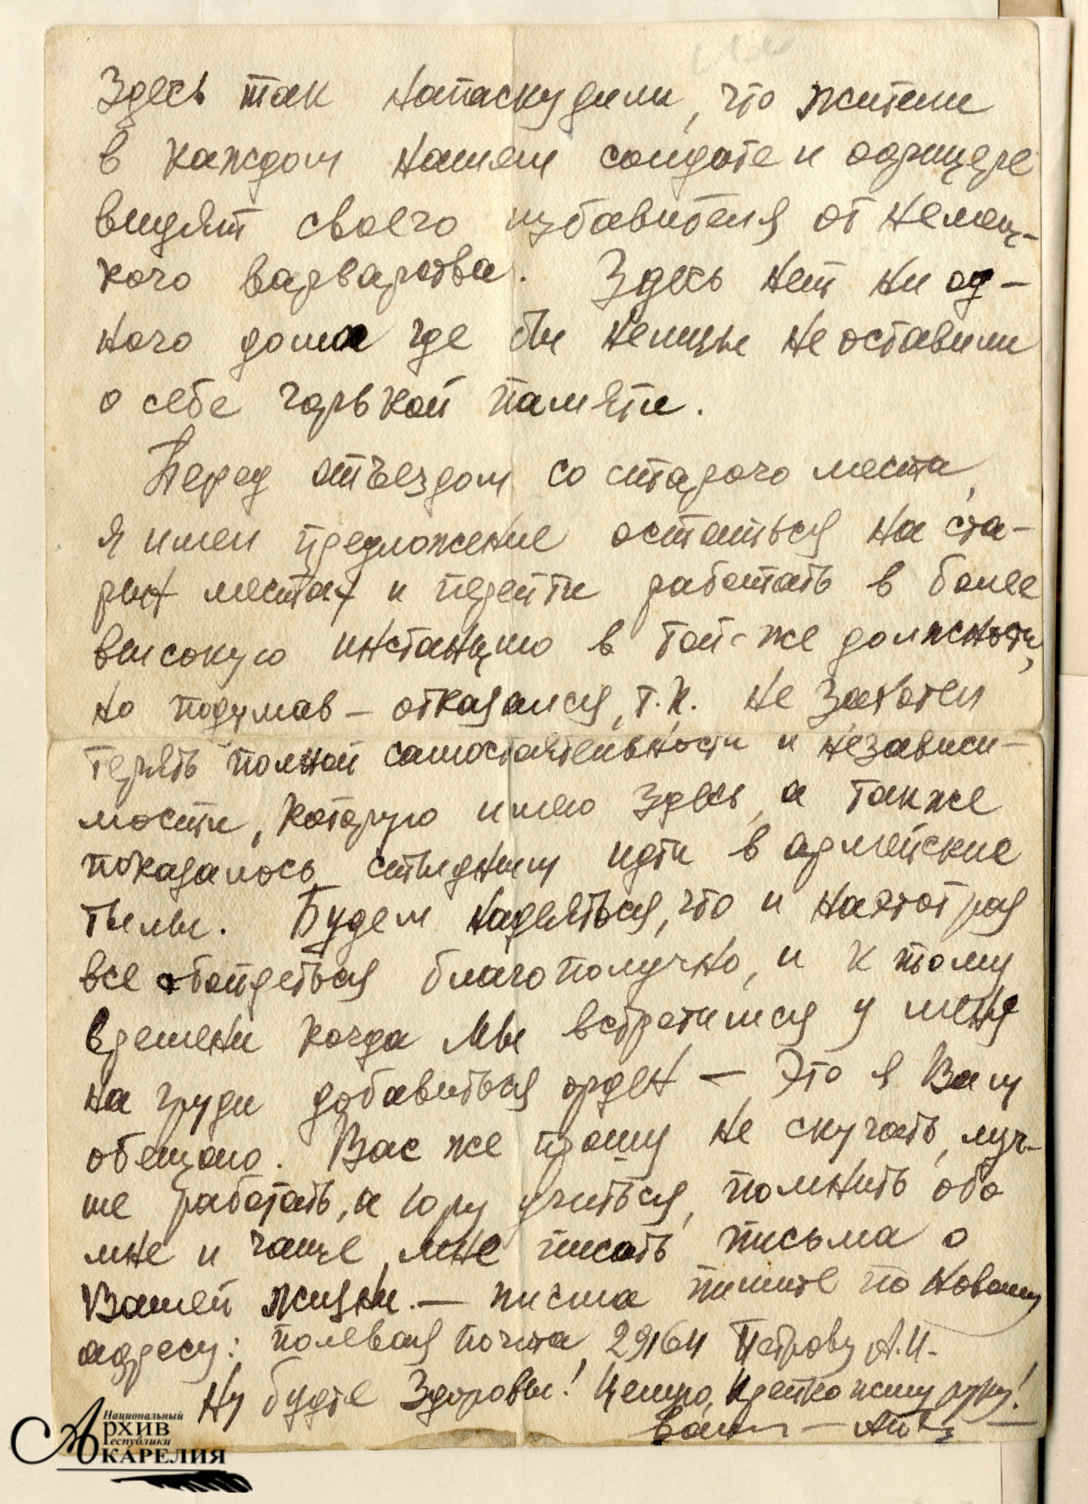 Здесь так напаскудили, что жители
в каждом нашем солдате и офицере
видят своего избавителя от немец-
кого варварства. Здесь нет ни од-
ного дома где бы немцы не оставили
о себе горькой памяти.
Перед отъездом со старого места,
я имел предложение остаться на ста-
рых местах и перейти работать в более
высокую инстанцию в той-же должности,
но подумав – отказался, т.к. не захотел
терять полной самостоятельности и независи-
мости, которую имею здесь, а также
показалось стыдным идти в армейские
тылы. Будем надеяться, что и на этот раз
все обойдеться благополучно, и к тому
времени когда мы встретимся у меня
на груди добавиться орден – Это я Вам
обещаю. Вас же прошу не скучать, луч-
ше работать, а Юру учиться, помнить обо
мне и чаще мне писать письма о
Вашей жизни. – письма пишите по новому
адресу: полевая почта 29164 Петрову А.И.
Ну будте здоровы! Целую, крепко жму руку!
Ваш –
Национальный
Архив
Республики
Карелия